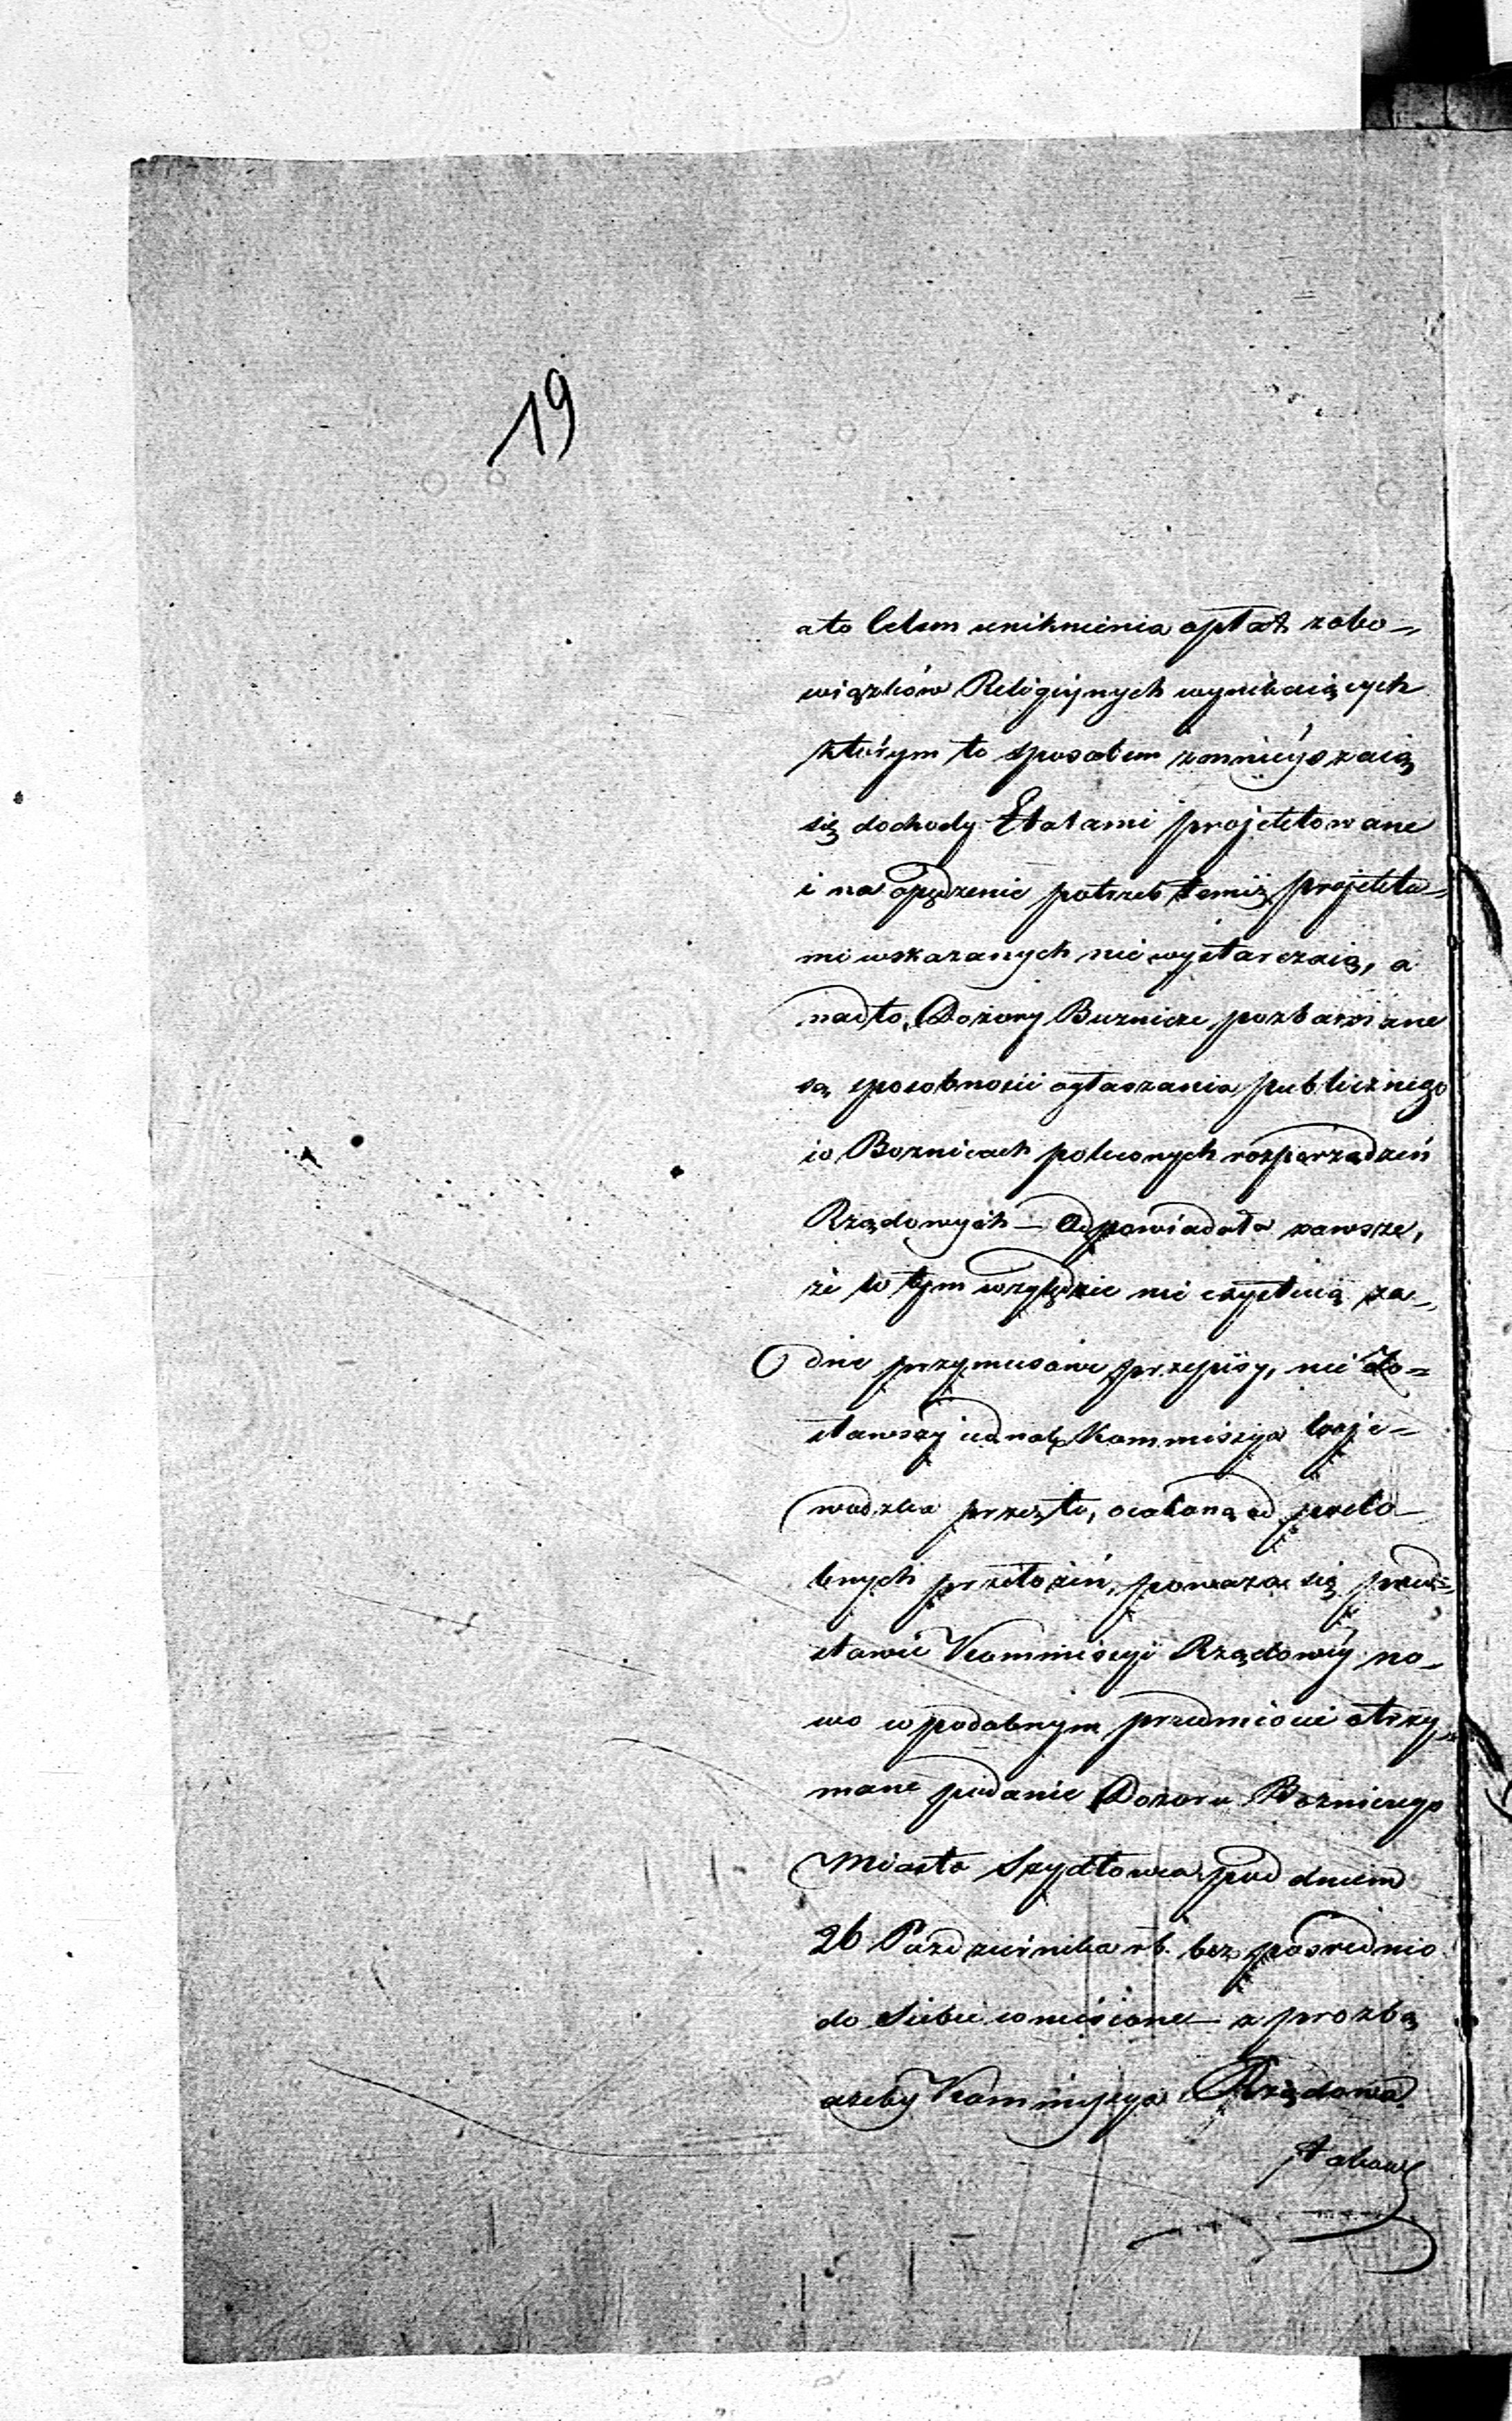 19
a to celem uniknienia opłat z obo=
wiązków Religijnych wynikaiących
którym to sposobem zmnieyszaią
się dochody Etatami projektowane
i na opędzenie potrzeb temiż projekta=
mi wskazanych nie wystarczaią, a
nadto, Dozory Buznicze pozbawione
są sposobności ogłaszania publicznego
w Boznicach poleconych rozporządzeń
Rządowych — Odpowiadała zawsze,
że w tym względzie nie exystuią ża=
dne przymusowe przepisy, nie zo=
stawszy iednak Kommissya Woje=
wodzka przez to, ocaloną od podo=
bnych przełożeń, poważa się przed=
stawić Kommissyi Rządowéy no=
wo w podobnym przedmiocie otrzy=
mane podanie Dozoru Boznicznego
Miasta Szydłowca pod dniem
26 Października rb. bezpośrednio
do Siebie wniesione — z prozbą
ażeby Kommissya Rządowa
takowe